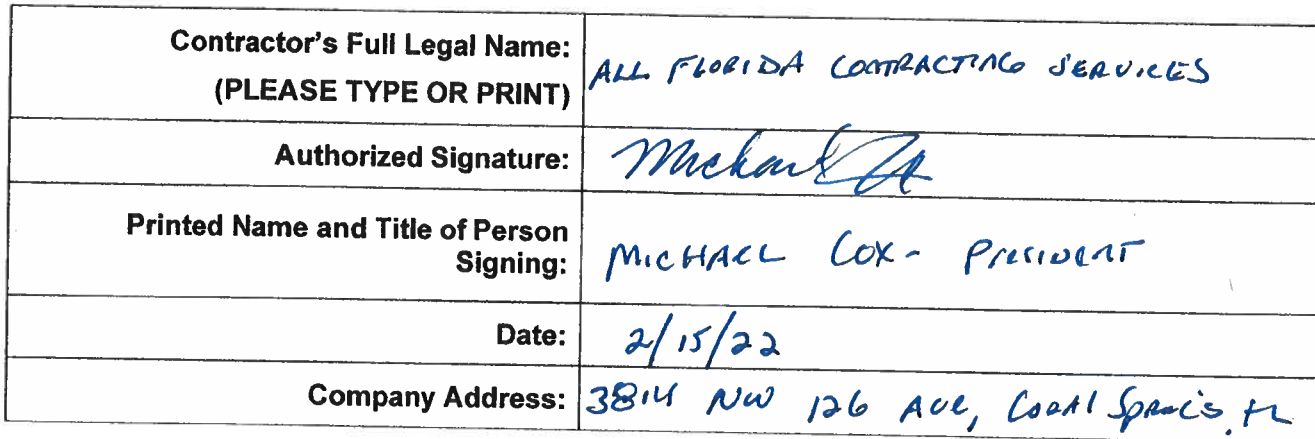 Contractor's Full Legal Name: ALL FLORIDA CONTRACTING SERVICES
(PLEASE TYPE OR PRINT)
Authorized Signature: Michael
Printed Name and Title of Person
Signing: MICHAEL COX - PRESIDENT
Date: 2/15/22
Company Address: 3814 NW 126 AVE, CORAL SPRINGS, FL